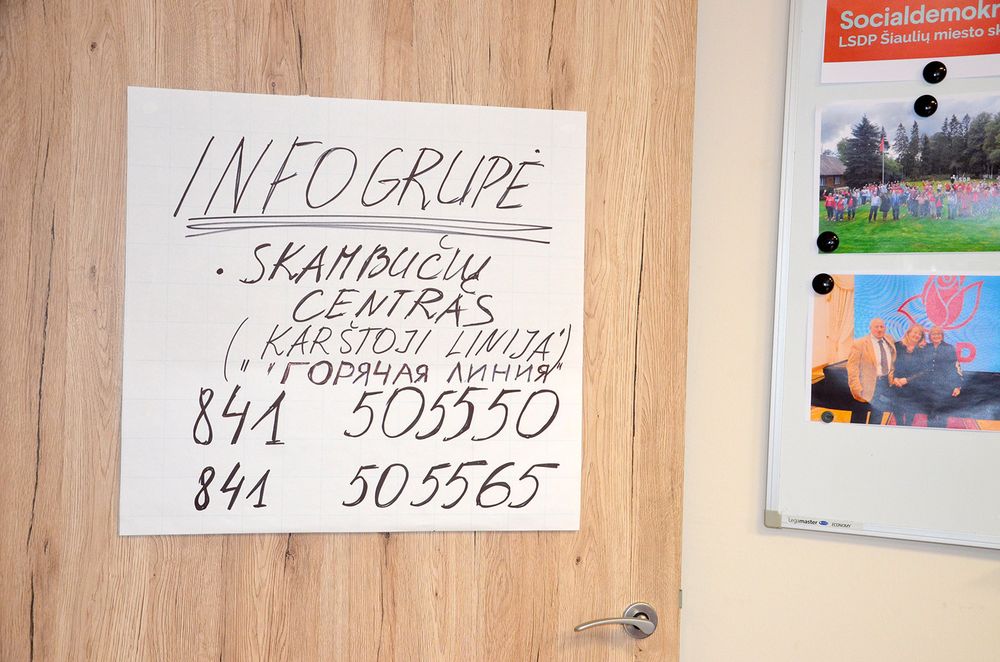 INFOGRUPĖ
• SKAMBUČIŲ
CENTRAS
(„KARŠTOJI LINIJA“)
„ “ГОРЯЧАЯ ЛИНИЯ“
841 505550
841 505565
Socialdemokr
LSDP Šiaulių miesto sk
Legamaster ECONOMY